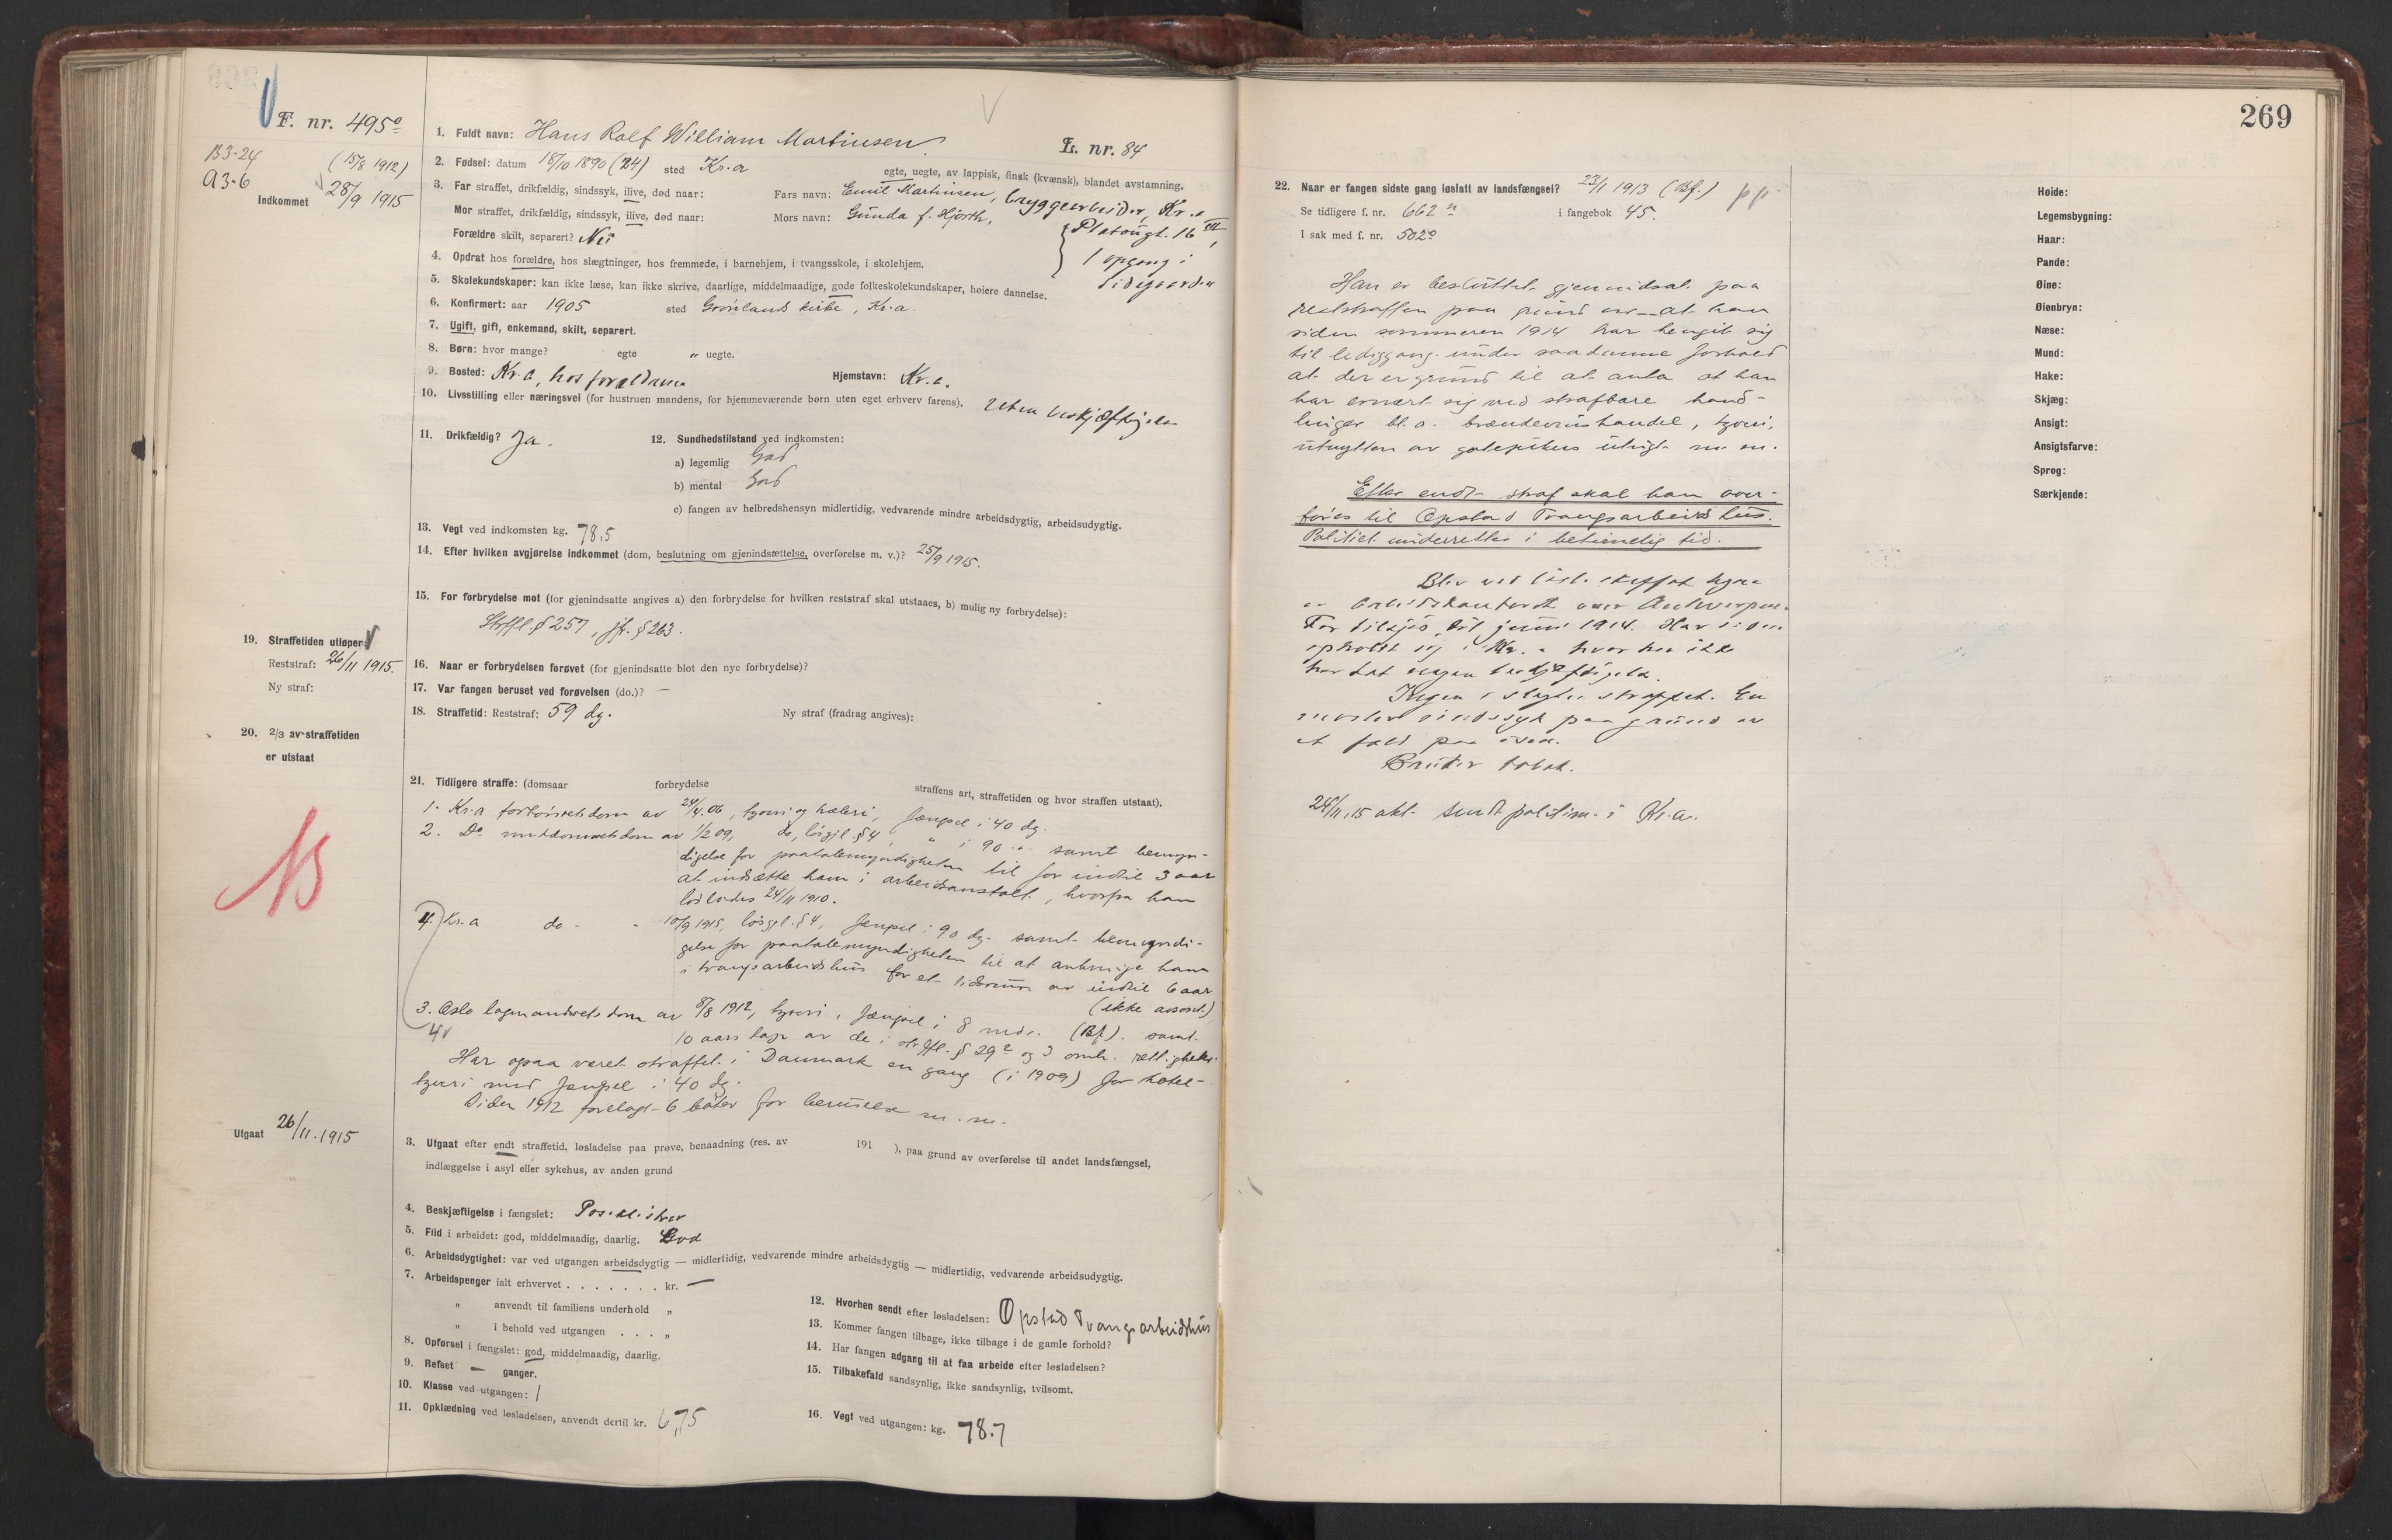 269
F. nr. 495
B3-24
A3-6
(15/8 1912)
Indkommet 28/9 1915
1. Fuldt navn: Hans Rolf William Martinsen
L. nr. 84
2. Fødsel: datum 18/10 1890 (24) sted Kr.a
egte, uegte, av lappisk, finsk (kvænsk), blandet avstamning.
3. Far straffet, drikfældig, sindssyk, ilive, død naar: Fars navn: Emil Martinsen, bryggearbeider, Kr.a
Mor straffet, drikfældig, sindssyk, ilive, død naar: Mors navn: Gunda f. Hjorth,
Platougt. 16 III,
1 opgang i
sidegaarden
Forældre skilt, separert? Nei
4. Opdrat hos forældre, hos slægtninger, hos fremmede, i barnehjem, i tvangsskole, i skolehjem.
5. Skolekundskaper: kan ikke læse, kan ikke skrive, daarlige, middelmaadige, gode folkeskolekundskaper, høiere dannelse.
6. Konfirmert: aar 1905 sted Grønlands kirke, Kr.a.
7. Ugift, gift, enkemand, skilt, separert.
8. Børn: hvor mange? egte " uegte.
9. Bosted: Kr.a, hos forældrene Hjemstavn: Kr.a.
10. Livsstilling eller næringsvei (for hustruen mandens, for hjemmeværende børn uten eget erhverv farens). Uten beskjæftigelse
11. Drikfældig? Ja.
12. Sundhedstilstand ved indkomsten:
a) legemlig God
b) mental God
c) fangen av helbredshensyn midlertidig, vedvarende mindre arbeidsdygtig, arbeidsudygtig.
13. Vegt ved indkomsten kg. 78,5
14. Efter hvilken avgjørelse indkommet (dom, beslutning om gjenindsættelse, overførelse m. v.)? 25/9 1915.
15. For forbrydelse mot (for gjenindsatte angives a) den forbrydelse for hvilken reststraf skal utstaaes, b) mulig ny forbrydelse):
Strfl. § 257, jfr. § 263.
19. Straffetiden utløper:
Reststraf: 26/11 1915.
Ny straf:
16. Naar er forbrydelsen forøvet (for gjenindsatte blot den nye forbrydelse)?
17. Var fangen beruset ved forøvelsen (do.)? —
18. Straffetid: Reststraf: 59 dg. Ny straf (fradrag angives):
20. 2/3 av straffetiden
er utstaat
21. Tidligere straffe: (domsaar forbrydelse straffens art, straffetiden og hvor straffen utstaat).
1. Kr.a forhørsretsdom av 24/4.06, tyveri og hæleri, fængsel i 40 dg.
2. Do meddomsretsdom av 1/2 09, do, løsgjl. § 4, " i 90 " samt bemyn-
digelse for paatalemyndigheten til for indtil 3 aar
at indsætte ham i arbeidsanstalt, hvorfra han
løslodes 24/11 1910.
4. Kr.a do - - 10/9 1915, løsgjl. § 4, fængsel i 90 dg. samt bemyndi-
gelse for paatalemyndigheten til at anbringe ham
i tvangsarbeidshus for et tidsrum av indtil 6 aar
(ikke avsonet)
3. Oslo lagmandsrets dom av 8/8 1912, tyveri, fængsel i 8 mdr. (Bf). samt
10 aars tap av de i strfl. § 29 2 og 3 omh. rettigheter.
Har ogsaa været straffet i Danmark en gang (i 1909) for hotel-
tyveri med fængsel i 40 dg.
Siden 1912 forelagt 6 bøter for beruselse m.m.
Utgaat 26/11.1915
3. Utgaat efter endt straffetid, løsladelse paa prøve, benaadning (res. av 191 ), paa grund av overførelse til andet landsfængsel,
indlæggelse i asyl eller sykehus, av anden grund
4. Beskjæftigelse i fængslet: Poseklistrer
5. Flid i arbeidet: god, middelmaadig, daarlig. God
6. Arbeidsdygtighet: var ved utgangen arbeidsdygtig — midlertidig, vedvarende mindre arbeidsdygtig — midlertidig, vedvarende arbeidsudygtig.
7. Arbeidspenger ialt erhvervet . . . . . . . kr. —
" anvendt til familiens underhold "
" i behold ved utgangen . . . "
8. Opførsel i fængslet: god, middelmaadig, daarlig.
9. Refset — ganger.
10. Klasse ved utgangen: 1
11. Opklædning ved løsladelsen, anvendt dertil kr. 6,75
12. Hvorhen sendt efter løsladelsen: Opstad Tvangsarbeidshus
13. Kommer fangen tilbage, ikke tilbage i de gamle forhold?
14. Har fangen adgang til at faa arbeide efter løsladelsen?
15. Tilbakefald sandsynlig, ikke sandsynlig, tvilsomt.
16. Vegt ved utgangen: kg. 78.7
22. Naar er fangen sidste gang løslatt av landsfængsel? 23/1 1913 (Bf.)
Se tidligere f. nr. 662 i fangebok 45.
I sak med f. nr. 502
Han er besluttet gjenindsat paa
reststraffen paa grund av at han
siden sommeren 1914 har hengit sig
til lediggang under saadanne forhold
at der er grund til at anta at han
har ernært sig ved strafbare hand-
linger bl.a. brændevinshandel, tyveri,
utnytten av gatepikers utugt m.m.
Efter endt straf skal han over-
føres til Opstad Tvangsarbeidshus.
Politiet underrettes i betimelig tid.
Blev ved løsl. skaffet hyre
av arbeidskontoret over Antwerpen.
For tilsjøs til juni 1914. Har siden
opholdt sig i Kr.a hvor han ikke
har hat nogen beskjæftigelse.
Ingen i slegten straffet. En
søster sindssyk paa grund av
et fald paa isen.
Bruker tobak.
24/11.15 akt. sendt politim. i Kr.a.
Høide:
Legemsbygning:
Haar:
Pande:
Øine:
Øienbryn:
Næse:
Mund:
Hake:
Skjæg:
Ansigt:
Ansigtsfarve:
Sprog:
Særkjende: